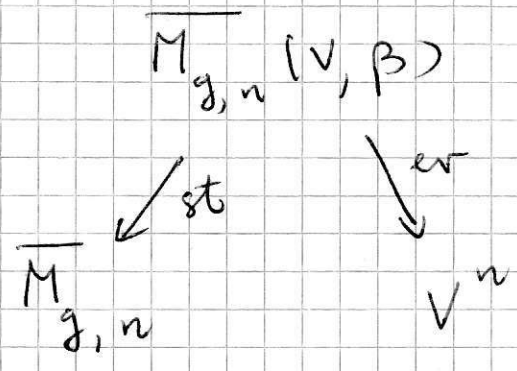 $\overline{M}_{g,n}(V, \beta)$
st ev
$\overline{M}_{g,n}$ $V^n$